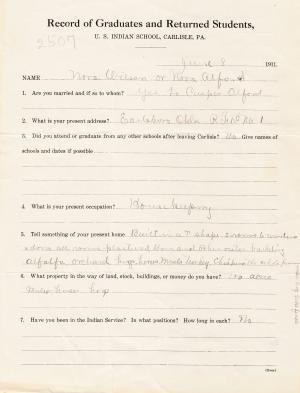 Record of Graduates and Returned Students,
U. S. INDIAN SCHOOL, CARLISLE, PA.
2507
June 8 1911.
NAME Nora Wilson or Nora Alford
1. Are you married and if so to whom? Yes to Cuper Alford
2. What is your present address? Earlsboro Okla R.F.D No 1
3. Did you attend or graduate from any other schools after leaving Carlisle? No Give names of
schools and dates if possible
4. What is your present occupation? Housekeeping
5. Tell something of your present home. Built in a T shape 3 rooms
rooms plastered Barn and other out building
alfalfa orchard hogs horses
6. What property in the way of land, stock, buildings, or money do you have? acres
hogs
7. Have you been in the Indian Service? In what positions? How long in each? No
(Over)